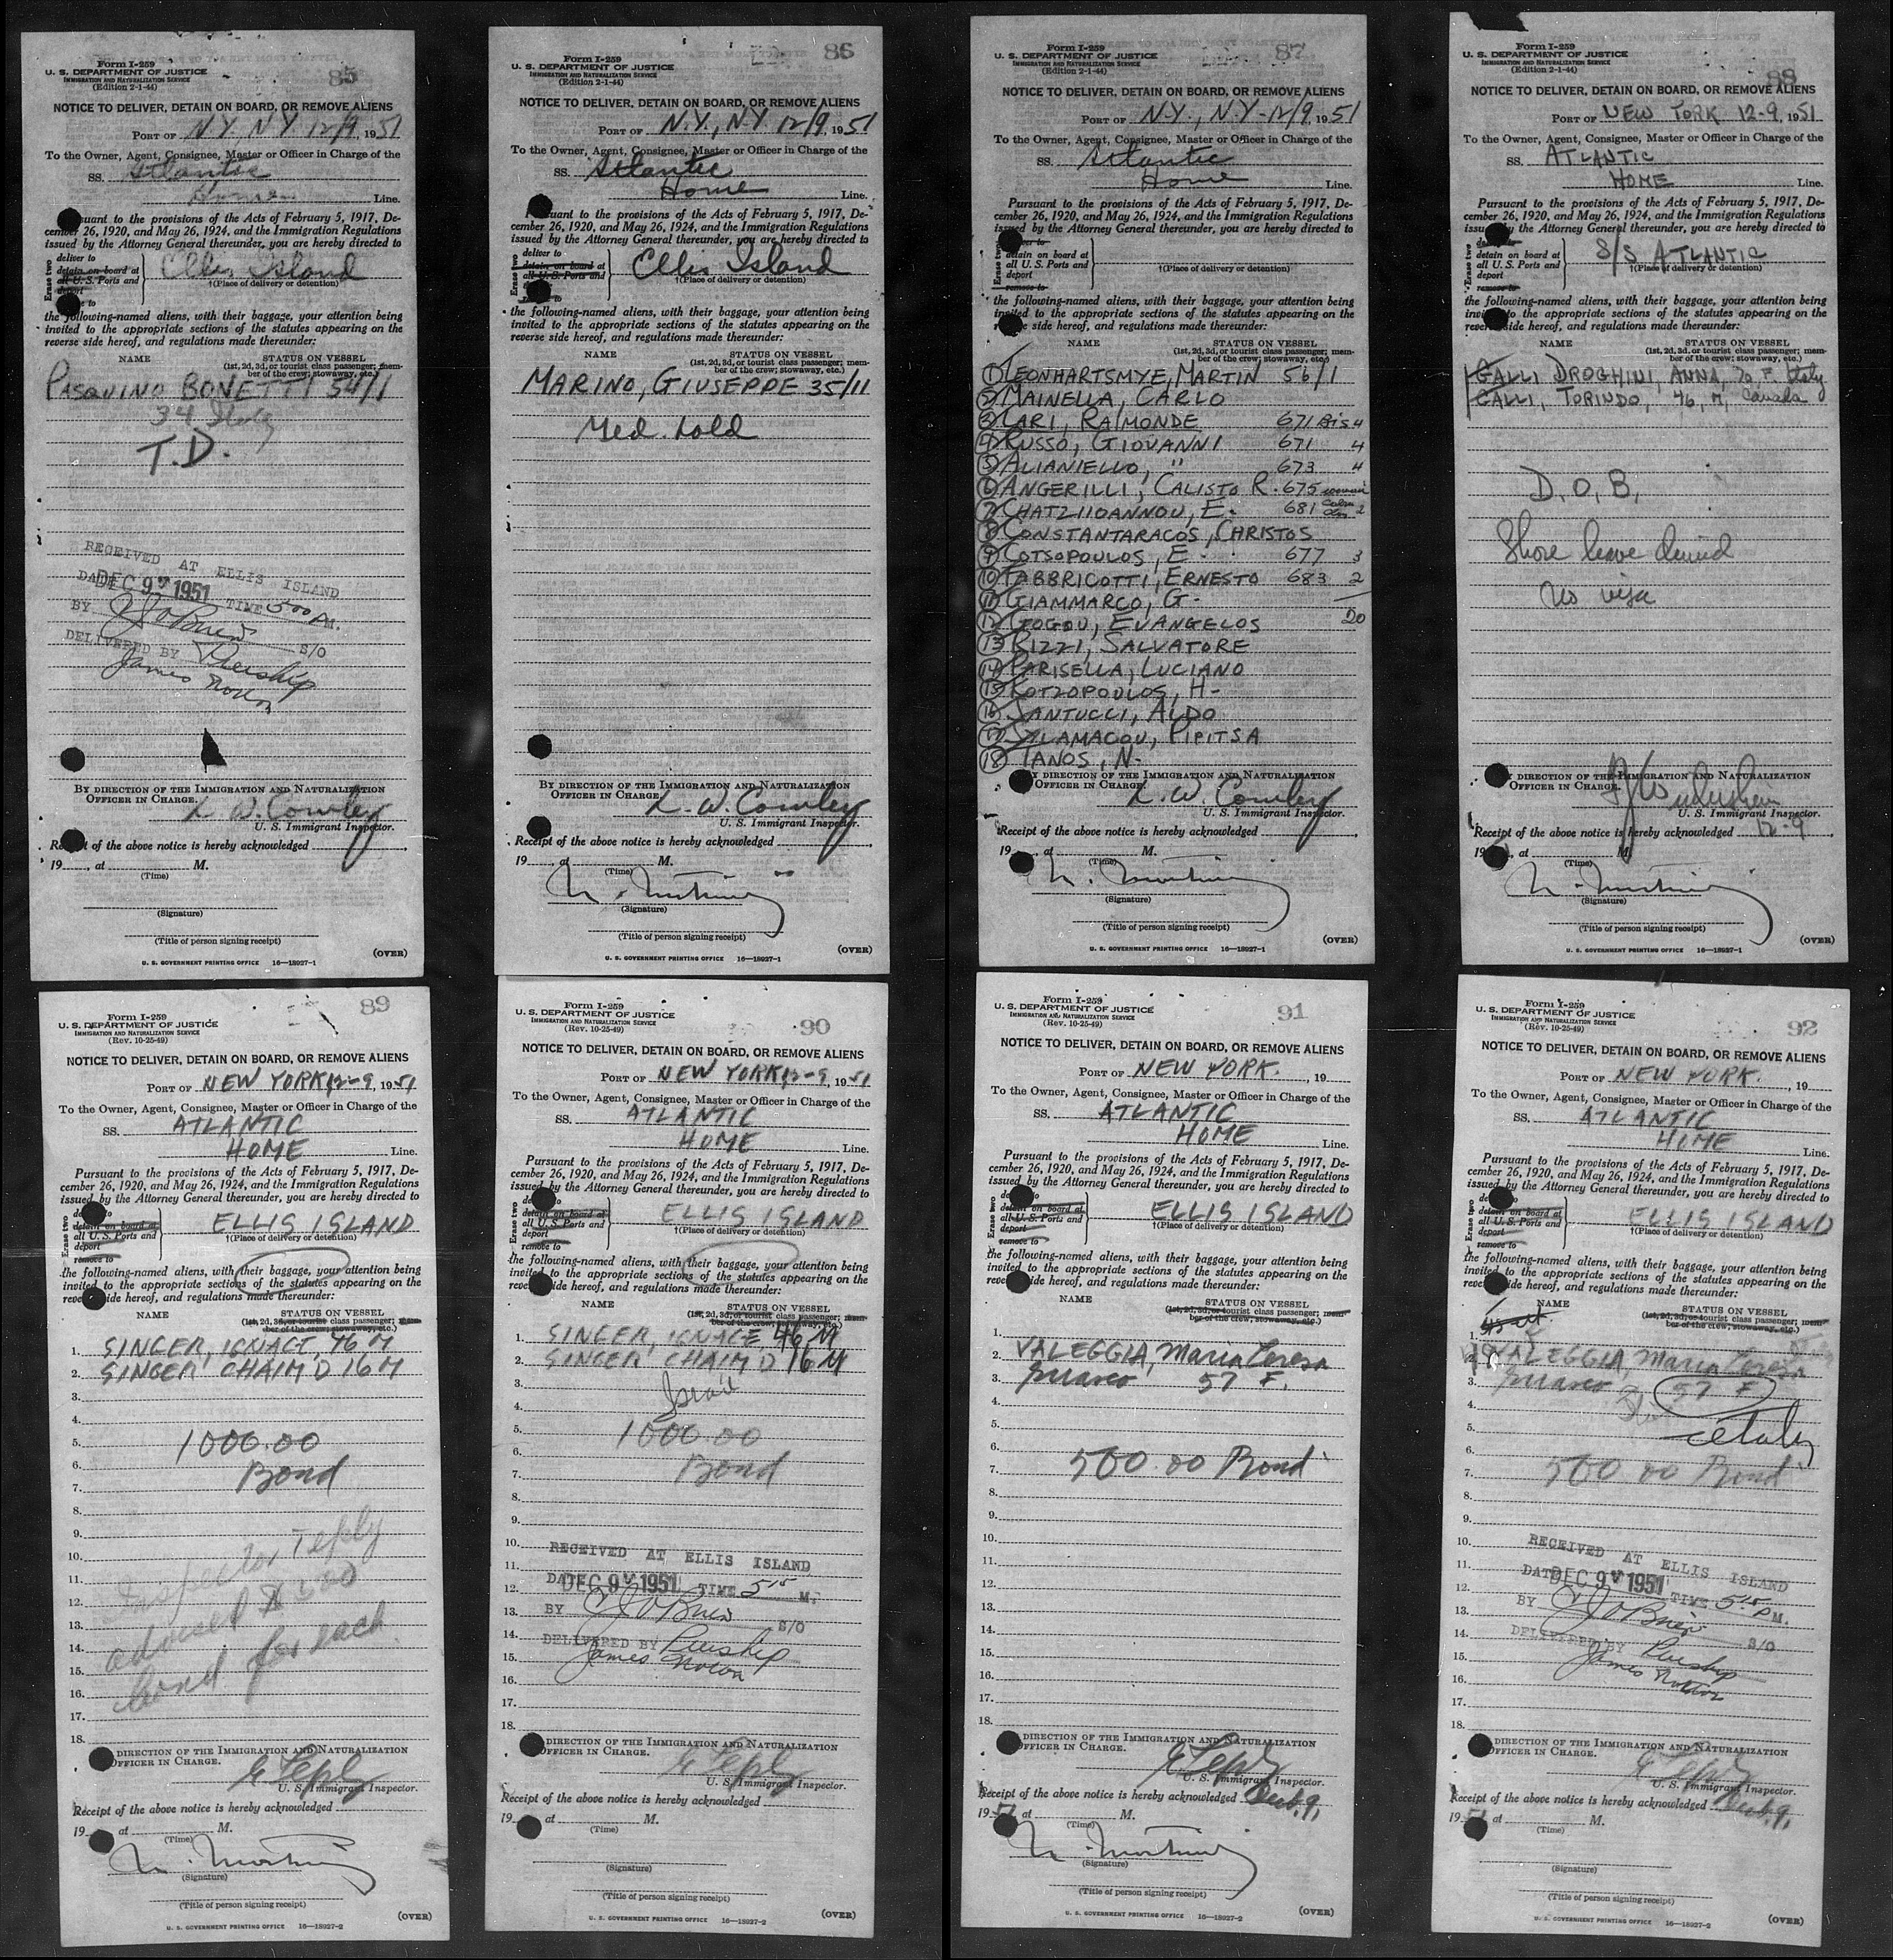 85
Form I-259
U. S. DEPARTMENT OF JUSTICE
IMMIGRATION AND NATURALIZATION SERVICE
(Edition 2-1-44)
NOTICE TO DELIVER, DETAIN ON BOARD, OR REMOVE ALIENS
PORT OF N.Y. N.Y. 12/9, 1951
To the Owner, Agent, Consignee, Master or Officer in Charge of the
SS. Atlantic
Home Line.
suant to the provisions of the Acts of February 5, 1917, De-
cember 26, 1920, and May 26, 1924, and the Immigration Regulations
issued by the Attorney General thereunder, you are hereby directed to
Erase two
deliver to
detain on board at
all U. S. Ports and
deport
Ellis Island
†(Place of delivery or detention)
the following-named aliens, with their baggage, your attention being
invited to the appropriate sections of the statutes appearing on the
reverse side hereof, and regulations made thereunder:
NAME STATUS ON VESSEL
(1st, 2d, 3d, or tourist class passenger; mem-
ber of the crew; stowaway, etc.)
PASQUINO BONETTI 54/1
34 Italy
T.D.
RECEIVED AT ELLIS ISLAND
DATE DEC 9 1951 TIME 5:00 P.M.
BY J O'Brien S/O
DELIVERED BY
James Nolan
BY DIRECTION OF THE IMMIGRATION AND NATURALIZATION
OFFICER IN CHARGE.
L. W. Cowley
U. S. Immigrant Inspector.
Receipt of the above notice is hereby acknowledged
19, at M.
(Time)
(Signature)
(Title of person signing receipt)
(OVER)
U. S. GOVERNMENT PRINTING OFFICE 16—18927-1
86
Form I-259
U. S. DEPARTMENT OF JUSTICE
IMMIGRATION AND NATURALIZATION SERVICE
(Edition 2-1-44)
NOTICE TO DELIVER, DETAIN ON BOARD, OR REMOVE ALIENS
PORT OF N.Y., N.Y. 12/9, 1951
To the Owner, Agent, Consignee, Master or Officer in Charge of the
SS. Atlantic
Home Line.
Pursuant to the provisions of the Acts of February 5, 1917, De-
cember 26, 1920, and May 26, 1924, and the Immigration Regulations
issued by the Attorney General thereunder, you are hereby directed to
Erase two
deliver to
detain on board at
all U. S. Ports and
Ellis Island
†(Place of delivery or detention)
the following-named aliens, with their baggage, your attention being
invited to the appropriate sections of the statutes appearing on the
reverse side hereof, and regulations made thereunder:
NAME STATUS ON VESSEL
(1st, 2d, 3d, or tourist class passenger; mem-
ber of the crew; stowaway, etc.)
MARINO, GIUSEPPE 35/11
Med. hold
BY DIRECTION OF THE IMMIGRATION AND NATURALIZATION
OFFICER IN CHARGE.
L. W. Cowley
U. S. Immigrant Inspector.
Receipt of the above notice is hereby acknowledged
19, at M.
(Time)
(Signature)
(Title of person signing receipt)
(OVER)
U. S. GOVERNMENT PRINTING OFFICE 16—18927-1
87
Form I-259
U. S. DEPARTMENT OF JUSTICE
IMMIGRATION AND NATURALIZATION SERVICE
(Edition 2-1-44)
NOTICE TO DELIVER, DETAIN ON BOARD, OR REMOVE ALIENS
PORT OF N.Y., N.Y - 12/9, 1951
To the Owner, Agent, Consignee, Master or Officer in Charge of the
SS. Atlantic
Home Line.
Pursuant to the provisions of the Acts of February 5, 1917, De-
cember 26, 1920, and May 26, 1924, and the Immigration Regulations
issued by the Attorney General thereunder, you are hereby directed to
Erase two
detain on board at
all U. S. Ports and
deport
remove to
†(Place of delivery or detention)
the following-named aliens, with their baggage, your attention being
invited to the appropriate sections of the statutes appearing on the
side hereof, and regulations made thereunder:
NAME STATUS ON VESSEL
(1st, 2d, 3d, or tourist class passenger; mem-
ber of the crew; stowaway, etc.)
1 LEONHARTSMYE, MARTIN 56/1
2 MAINELLA, CARLO
3 LARI, RAIMONDE 671 Bis 4
4 RUSSO, GIOVANNI 671 4
5 ALIANIELLO, " 673 4
6 ANGERILLI, CALISTO R. 675
7 CHATZIIOANNOU, E. 681 2
8 CONSTANTARACOS, CHRISTOS
9 COTSOPOULOS, E. 677 3
10 FABBRICOTTI, ERNESTO 683 2
11 GIAMMARCO, G.
12 GOGOU, EVANGELOS 20
13 RIZZI, SALVATORE
14 PARISELLA, LUCIANO
15 KOTZOPOULOS, H-
16 SANTUCCI, ALDO
17 SALAMACOU, PIPITSA
18 TANOS, N-
DIRECTION OF THE IMMIGRATION AND NATURALIZATION
OFFICER IN CHARGE.
L. W. Cowley
U. S. Immigrant Inspector.
Receipt of the above notice is hereby acknowledged
19, at M.
(Time)
(Signature)
(Title of person signing receipt)
(OVER)
U. S. GOVERNMENT PRINTING OFFICE 16—18927-1
88
Form I-259
U. S. DEPARTMENT OF JUSTICE
IMMIGRATION AND NATURALIZATION SERVICE
(Edition 2-1-44)
NOTICE TO DELIVER, DETAIN ON BOARD, OR REMOVE ALIENS
PORT OF NEW YORK 12-9, 1951
To the Owner, Agent, Consignee, Master or Officer in Charge of the
SS. ATLANTIC
HOME Line.
Pursuant to the provisions of the Acts of February 5, 1917, De-
cember 26, 1920, and May 26, 1924, and the Immigration Regulations
issued by the Attorney General thereunder, you are hereby directed to
Erase two
detain on board at
all U. S. Ports and
deport
remove to
S/S ATLANTIC
†(Place of delivery or detention)
the following-named aliens, with their baggage, your attention being
invited to the appropriate sections of the statutes appearing on the
reverse side hereof, and regulations made thereunder:
NAME STATUS ON VESSEL
(1st, 2d, 3d, or tourist class passenger; mem-
ber of the crew; stowaway, etc.)
GALLI DROGHINI, ANNA, 70, F. Italy
GALLI, TORINDO, 76, M, Canada
D.O.B.
Shore leave denied
No visa
DIRECTION OF THE IMMIGRATION AND NATURALIZATION
OFFICER IN CHARGE.
U. S. Immigrant Inspector.
Receipt of the above notice is hereby acknowledged 12-9
19, at M.
(Time)
(Signature)
(Title of person signing receipt)
(OVER)
U. S. GOVERNMENT PRINTING OFFICE 16—18927-1
89
Form I-259
U. S. DEPARTMENT OF JUSTICE
IMMIGRATION AND NATURALIZATION SERVICE
(Rev. 10-25-49)
NOTICE TO DELIVER, DETAIN ON BOARD, OR REMOVE ALIENS
PORT OF NEW YORK, 12-9, 1951
To the Owner, Agent, Consignee, Master or Officer in Charge of the
SS. ATLANTIC
HOME Line.
Pursuant to the provisions of the Acts of February 5, 1917, De-
cember 26, 1920, and May 26, 1924, and the Immigration Regulations
issued by the Attorney General thereunder, you are hereby directed to
Erase two
detain on board at
all U. S. Ports and
deport
remove to
ELLIS ISLAND
†(Place of delivery or detention)
the following-named aliens, with their baggage, your attention being
invited to the appropriate sections of the statutes appearing on the
side hereof, and regulations made thereunder:
NAME STATUS ON VESSEL
(1st, 2d, 3d, or tourist class passenger; mem-
ber of the crew; stowaway, etc.)
1. SINGER, IGNACE, 46 M
2. SINGER CHAIM D 16 M
3.
4.
5. 1000.00
6. Bond
7.
8.
9.
10. Inspector Teply
11.
12. advised $500
13.
14. bond for each
15.
16.
17.
18.
DIRECTION OF THE IMMIGRATION AND NATURALIZATION
OFFICER IN CHARGE.
G Teply
U. S. Immigrant Inspector.
Receipt of the above notice is hereby acknowledged
19 at M.
(Time)
(Signature)
(Title of person signing receipt)
(OVER)
U. S. GOVERNMENT PRINTING OFFICE 16—18927-2
90
Form I-259
U. S. DEPARTMENT OF JUSTICE
IMMIGRATION AND NATURALIZATION SERVICE
(Rev. 10-25-49)
NOTICE TO DELIVER, DETAIN ON BOARD, OR REMOVE ALIENS
PORT OF NEW YORK, 12-9, 1951
To the Owner, Agent, Consignee, Master or Officer in Charge of the
SS. ATLANTIC
HOME Line.
Pursuant to the provisions of the Acts of February 5, 1917, De-
cember 26, 1920, and May 26, 1924, and the Immigration Regulations
issued by the Attorney General thereunder, you are hereby directed to
Erase two
detain on board at
all U. S. Ports and
deport
remove to
ELLIS ISLAND
†(Place of delivery or detention)
the following-named aliens, with their baggage, your attention being
invited to the appropriate sections of the statutes appearing on the
side hereof, and regulations made thereunder:
NAME STATUS ON VESSEL
(1st, 2d, 3d, or tourist class passenger; mem-
ber of the crew; stowaway, etc.)
1. SINGER, IGNACE 46 M
2. SINGER CHAIM D 16 M
3. Israel
4.
5. 1000.00
6. Bond
7.
8.
9.
10. RECEIVED AT ELLIS ISLAND
11.
12. DATE DEC 9 1951 TIME 5:15 M.
13. BY J O'Brien S/O
14. DELIVERED BY
15. James Nolan
16.
17.
18.
DIRECTION OF THE IMMIGRATION AND NATURALIZATION
OFFICER IN CHARGE.
G Teply
U. S. Immigrant Inspector.
Receipt of the above notice is hereby acknowledged
19, at M.
(Time)
(Signature)
(Title of person signing receipt)
(OVER)
U. S. GOVERNMENT PRINTING OFFICE 16—18927-2
91
Form I-259
U. S. DEPARTMENT OF JUSTICE
IMMIGRATION AND NATURALIZATION SERVICE
(Rev. 10-25-49)
NOTICE TO DELIVER, DETAIN ON BOARD, OR REMOVE ALIENS
PORT OF NEW YORK., 19
To the Owner, Agent, Consignee, Master or Officer in Charge of the
SS. ATLANTIC
HOME Line.
Pursuant to the provisions of the Acts of February 5, 1917, De-
cember 26, 1920, and May 26, 1924, and the Immigration Regulations
issued by the Attorney General thereunder, you are hereby directed to
Erase two
detain on board at
all U. S. Ports and
deport
remove to
ELLIS ISLAND
†(Place of delivery or detention)
the following-named aliens, with their baggage, your attention being
invited to the appropriate sections of the statutes appearing on the
side hereof, and regulations made thereunder:
NAME STATUS ON VESSEL
(1st, 2d, 3d, or tourist class passenger; mem-
ber of the crew; stowaway, etc.)
1.
2. VALEGGIA, Maria Teresa
3. 57 F.
4.
5.
6.
7. 500.00 Bond
8.
9.
10.
11.
12.
13.
14.
15.
16.
17.
18.
DIRECTION OF THE IMMIGRATION AND NATURALIZATION
OFFICER IN CHARGE.
G Teply
U. S. Immigrant Inspector.
Receipt of the above notice is hereby acknowledged Dec. 9,
1951 at M.
(Time)
(Signature)
(Title of person signing receipt)
(OVER)
U. S. GOVERNMENT PRINTING OFFICE 16—18927-2
92
Form I-259
U. S. DEPARTMENT OF JUSTICE
IMMIGRATION AND NATURALIZATION SERVICE
(Rev. 10-25-49)
NOTICE TO DELIVER, DETAIN ON BOARD, OR REMOVE ALIENS
PORT OF NEW YORK., 19
To the Owner, Agent, Consignee, Master or Officer in Charge of the
SS. ATLANTIC
HOME Line.
Pursuant to the provisions of the Acts of February 5, 1917, De-
cember 26, 1920, and May 26, 1924, and the Immigration Regulations
issued by the Attorney General thereunder, you are hereby directed to
Erase two
detain on board at
all U. S. Ports and
deport
remove to
ELLIS ISLAND
†(Place of delivery or detention)
the following-named aliens, with their baggage, your attention being
invited to the appropriate sections of the statutes appearing on the
side hereof, and regulations made thereunder:
NAME STATUS ON VESSEL
(1st, 2d, 3d, or tourist class passenger; mem-
ber of the crew; stowaway, etc.)
1.
2. VALEGGIA, Maria Teresa
3. 57 F.
4.
5. Italy
6.
7. 500.00 Bond
8.
9.
10. RECEIVED AT ELLIS ISLAND
11.
12. DATE DEC 9 1951 TIME 5:15 P.M.
13. BY J O'Brien S/O
14. DELIVERED BY
15. James Nolan
16.
17.
18.
DIRECTION OF THE IMMIGRATION AND NATURALIZATION
OFFICER IN CHARGE.
G Teply
U. S. Immigrant Inspector.
Receipt of the above notice is hereby acknowledged Dec. 9,
1951 at M.
(Time)
(Signature)
(Title of person signing receipt)
(OVER)
U. S. GOVERNMENT PRINTING OFFICE 16—18927-2